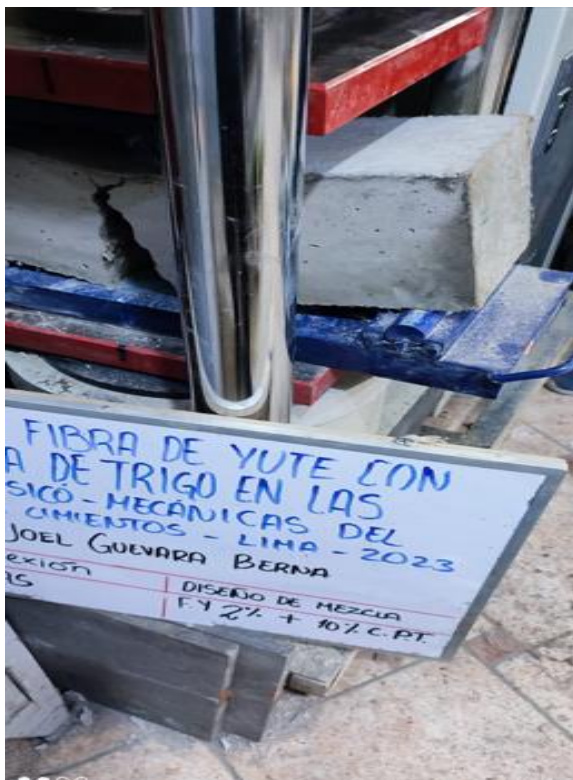 FIBRA DE YUTE CON
A DE TRIGO EN LAS
SICO-MECÁNICAS DEL
CIMIENTOS - LIMA - 2023
JOEL GUEVARA BERNA
EXIÓN
AS
DISEÑO DE MEZCLA
F.Y 2% + 10% C.P.T.